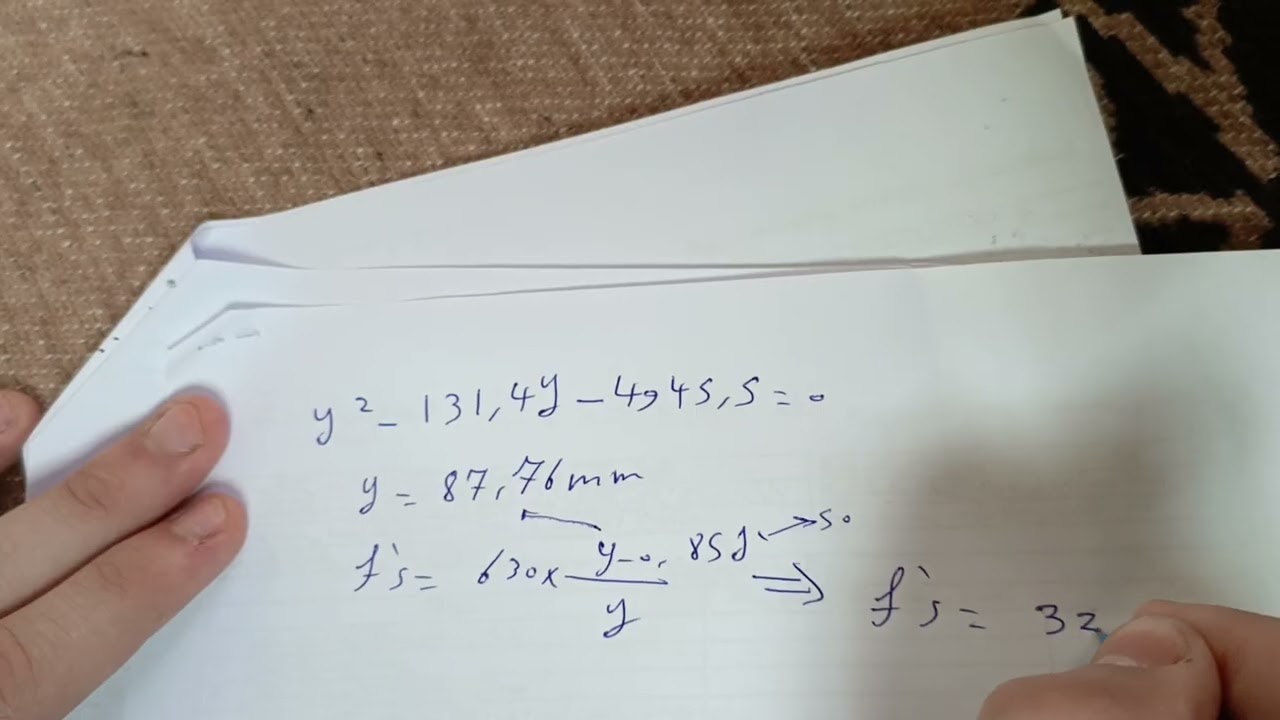 y² - 131,4y - 4945,5 = 0
y = 87,76mm
f's = 630 x (y - 0,85d → 50) / y ⟹ f's = 32